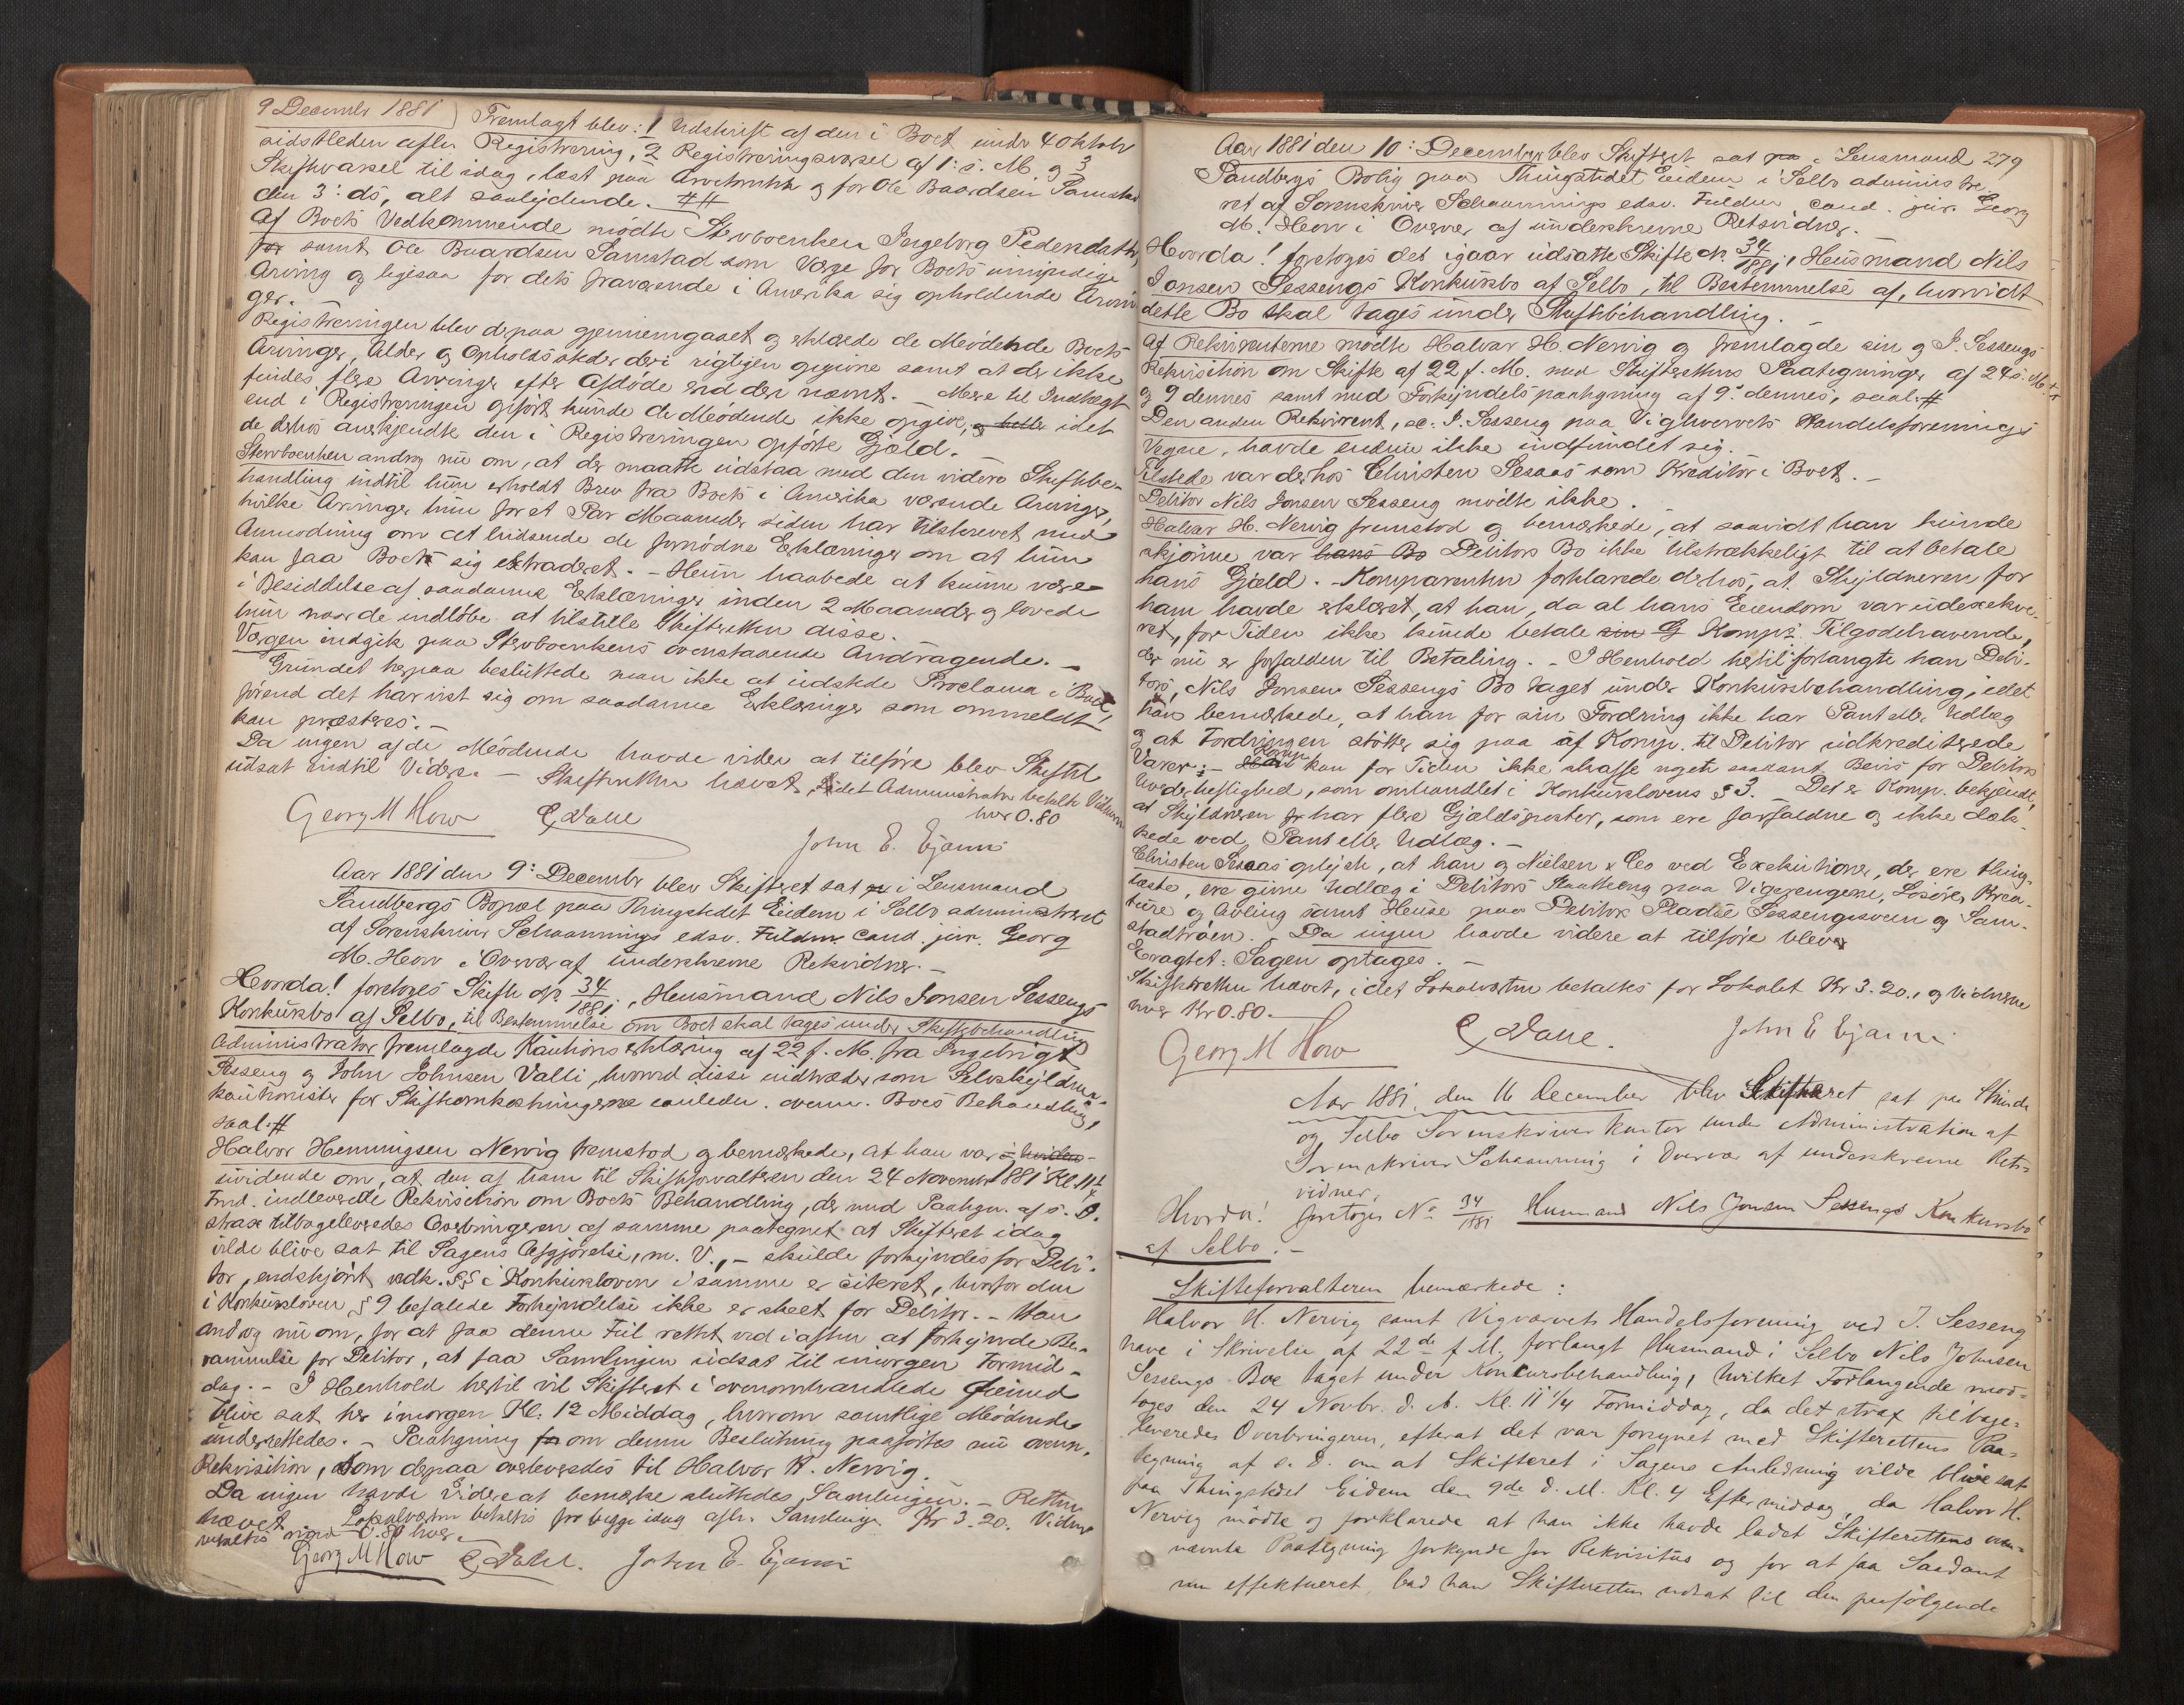 9 December 1881) Fremlagt blev: 1 Udskrift af den i Boet under 4 Oktober
sidstleden afh. Registrering, 2 Registreringsvarsel af 1: s. M. og 3
Skiftevarsel til idag, læst paa Arvetomten og for Ole Baardsen Samstad
den 3: ds, alt saalydende. ##
Af Boets Vedkommende mødte Stervboenken Ingeborg Pedersdatter,
samt Ole Baardsen Samstad som Værge for Boets umyndige
Arving og ligesaa for dets fraværende i Amerika sig opholdende Arvin
ger. -
Registreringen blev derpaa gjennemgaaet og erklærede de Mødende Boets
Arvinger, Alder og Opholdssteder deri rigtigen opgivne samt at der ikke
findes flere Arvinger efter Afdøde end der nævnt. - Mere til Indtægt
end i Registreringen opført kunde de Mødende ikke opgive, og heller idet
de derhos anerkjendte den i Registreringen opførte Gjæld. -
Stervboenken androg nu om, at der maatte udstaa med den videre Skiftebe-
handling indtil hun erholdt Brev fra Boets i Amerika værende Arvinger,
hvilke Arvinger hun for et Par Maaneder siden har tilskrevet med
Anmodning om at tilsende de fornødne Erklæringer om at hun
kan faa Boet sig extraderet. - Hun haabede at kunne være
i Besiddelse af saadanne Erklæringer inden 2 Maaneder og lovede
hun naar de indløbe at tilstille Skifteretten disse.
Værgen indgik paa Stervboenkens ovenstaaende Andragende. -
Grundet herpaa besluttede man ikke at udstede Proclama i Boet,
førend det har vist sig om saadanne Erklæringer som ommeldt
kan præsteres. -
Da ingen af de Mødende havde videre at tilføre blev Skiftet
udsat indtil Videre. - Skifteretten hævet, idet Administrator betalte Vidnerne
hver 0.80
Georg M How E Dahl
John E. Ejann
Aar 1881 den 9: Decembr blev Skifteret sat i Lensmand
Sandbergs Bopæl paa Thingstedet Eidem i Selbo administreret
af Sorenskriver Schaannings edsv. Fuldm. Cand. jur. Georg
M. How i Overvær af underskrevne Retsvidner. -
Hvorda! foretoges Skifte No 34/1881, Husmand Nils Jonsen Sessengs
Konkursbo af Selbo, til Bestemmelse om Boet skal tages under Skiftebehandling
Administrator fremlagde Kautionserklæring af 22 f. M. fra Ingebrigt
Sesseng og John Johnsen Valli, hvorved disse indtræder som Selvskyldner-
kautionister for Skifteomkostningerne anleden. ovenn. Boes Behandling,
saal. #
Halvor Henningsen Nervig fremstod og bemærkede, at han var
uvidende om, at den af ham til Skifteforvalteren den 24 November 1881 Kl. 11¼
Fmd. indleverede Rekvisition om Boets Behandling, der med Paategn. af s. D.
strax tilbageleveredes Overbringeren af samme paategnet at Skifteret idag
vilde blive sat til Sagens Afgjørelse, m. V., - skulde forkyndes for Debi-
tor, endskjønt vedk. §§ i Konkursloven i samme er citeret, hvorfor den
i Konkursloven § 9 befalede Forkyndelse ikke er skeet for Debitor. - Han
androg nu om, for at faa denne Feil rettet ved iaften at forkynde Be-
rammelse for Debitor, at faa Samlingen udsat til imorgen Formid-
dag. - I Henhold hertil vil Skifteret i ovenomhandlede Øiemed
blive sat her imorgen Kl. 12 Middag, hvorom samtlige Mødende
underrettedes. - Paategning om denne Beslutning paaførtes nu ovenn.
Rekvisition, som derpaa overleveredes til Halvor H. Nervig.
Da ingen havde videre at bemærke sluttedes Samlingen. - Retten
hævet. Lokalværten betaltes for begge idag afh. Samlinger Kr 3.20. Vidnerne
betaltes 0.80 hver. -
Georg M How E Dahl. John E. Ejann
279
Aar 1881 den 10: December blev Skifteret sat i Lensmand
Sandbergs Bolig paa Thingstedet Eidem i Selbo administre-
ret af Sorenskriver Schaannings edsv. Fuldm. cand. jur. Georg
M. How i Overvær af underskrevne Retsvidner.
Hvorda! foretoges det igaar udsatte Skifte No. 34/1881, Husmand Nils
Jonsen Sessengs Konkursbo af Selbo, til Bestemmelse af, hvorvidt
dette Bo skal tages under Skiftebehandling. -
Af Rekvirenterne mødte Halvor H. Nervig og fremlagde sin og I. Sessengs
Rekvisition om Skifte af 22 f. M. med Skifterettens Paategninger af 24 s. M.
og 9 dennes samt med Forkyndelsespaategning af 9: dennes, saal. #
Den anden Rekvirent, I. Sesseng paa Vighvervets Handelsforenings
Vegne, havde endnu ikke indfundet sig.
Tilstede var derhos Christen Sesaas som Kreditor i Boet. -
Debitor Nils Jonsen Sesseng mødte ikke.
Halvor H. Nervig fremstod og bemærkede, at saavidt han kunde
skjønne var hans Bo Debitors Bo ikke tilstrækkeligt til at betale
hans Gjæld. - Komparenten forklarede derhos, at Skyldneren for
ham havde erklæret, at han, da al hans Eiendom var udexekve-
ret, for Tiden ikke kunde betale sin G Komps Tilgodehavende,
der nu er forfalden til Betaling. - I Henhold hertil forlangte han Debi-
tors, Nils Jonsen Sessengs Bo taget under Konkursbehandling, idet
han bemærkede, at han for sin Fordring ikke har Pant eller Udlæg
og at Fordringen støtter sig paa af Komp. til Debitor udkrediterede
Varer; - Komp. kan for Tiden ikke skaffe noget saadant Bevis for Debitors
Uvederheftighed, som omhandlet i Konkurslovens § 3. - Det er Komp. bekjendt,
at Skyldneren har flere Gjældsposter, som ere forfaldne og ikke dæk-
kede ved Pant eller Udlæg. -
Christen Sesaas oplyste, at han og Nielsen & Co ved Exekutioner, der ere thing-
læste, ere givne Udlæg i Debitors Slaatteeng paa Vigerengene, Løsøre, Krea-
ture og Avling samt Huse paa Debitors Pladse Sessengsveen og Sam-
stadtrøen. - Da ingen havde videre at tilføre blev
Eragtet: Sagen optages. -
Skifteretten hævet, idet Lokalværten betaltes for Lokalet Kr 3.20., og Vidnerne
hver Kr 0.80. -
Georg M How E Dahl. John E Ejann
Aar 1881, den 16 December blev Skifteret sat paa Strinde
og Selbo Sorenskriverkontor under Administration af
Sorenskriver Schaanning i Overvær af underskrevne Rets-
vidner.
Hvorda! foretoges No 34/1881 Husmand Nils Jonsen Sessengs Konkursbo
af Selbo. -
Skifteforvalteren bemærkede:
Halvor H. Nervig samt Vigvarvets Handelsforening ved I. Sesseng
have i Skrivelse af 22de f. M. forlangt Husmand i Selbo Nils Johnsen
Sessengs Boe taget under Koncursbehandling, hvilket Forlangende mod-
toges den 24 Novbr. d. A. Kl. 11 1/4 Formiddag, da det strax tilbage-
leveredes Overbringeren, efterat det var forsynet med Skifterettens Paa-
tegning af s. D. om at Skifteret i Sagens Anledning vilde blive sat
paa Thingstedet Eidem den 9de d. M. Kl. 4 Eftermiddag, da Halvor H.
Nervig mødte og forklarede at han ikke havde ladet Skifterettens oven-
nævnte Paategning forkynde for Rekvisitus og for at faa Saadant
nu effektueret, bad han Skifteretten udsat til den paafølgende